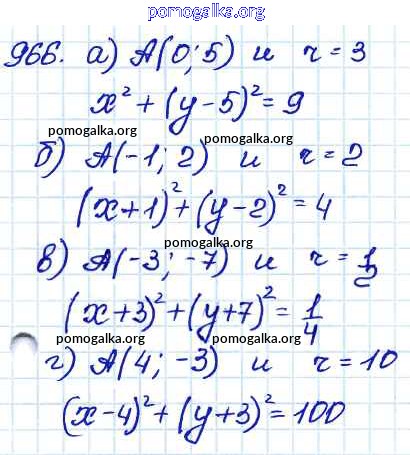 pomogalka.org
966. а) A(0; 5) и r = 3
x² + (y - 5)² = 9
pomogalka.org pomogalka.org
б) A(-1; 2) и r = 2
(x + 1)² + (y - 2)² = 4
pomogalka.org
в) A(-3; -7) и r = 1/2
(x + 3)² + (y + 7)² = 1/4
pomogalka.org pomogalka.org
г) A(4; -3) и r = 10
(x - 4)² + (y + 3)² = 100